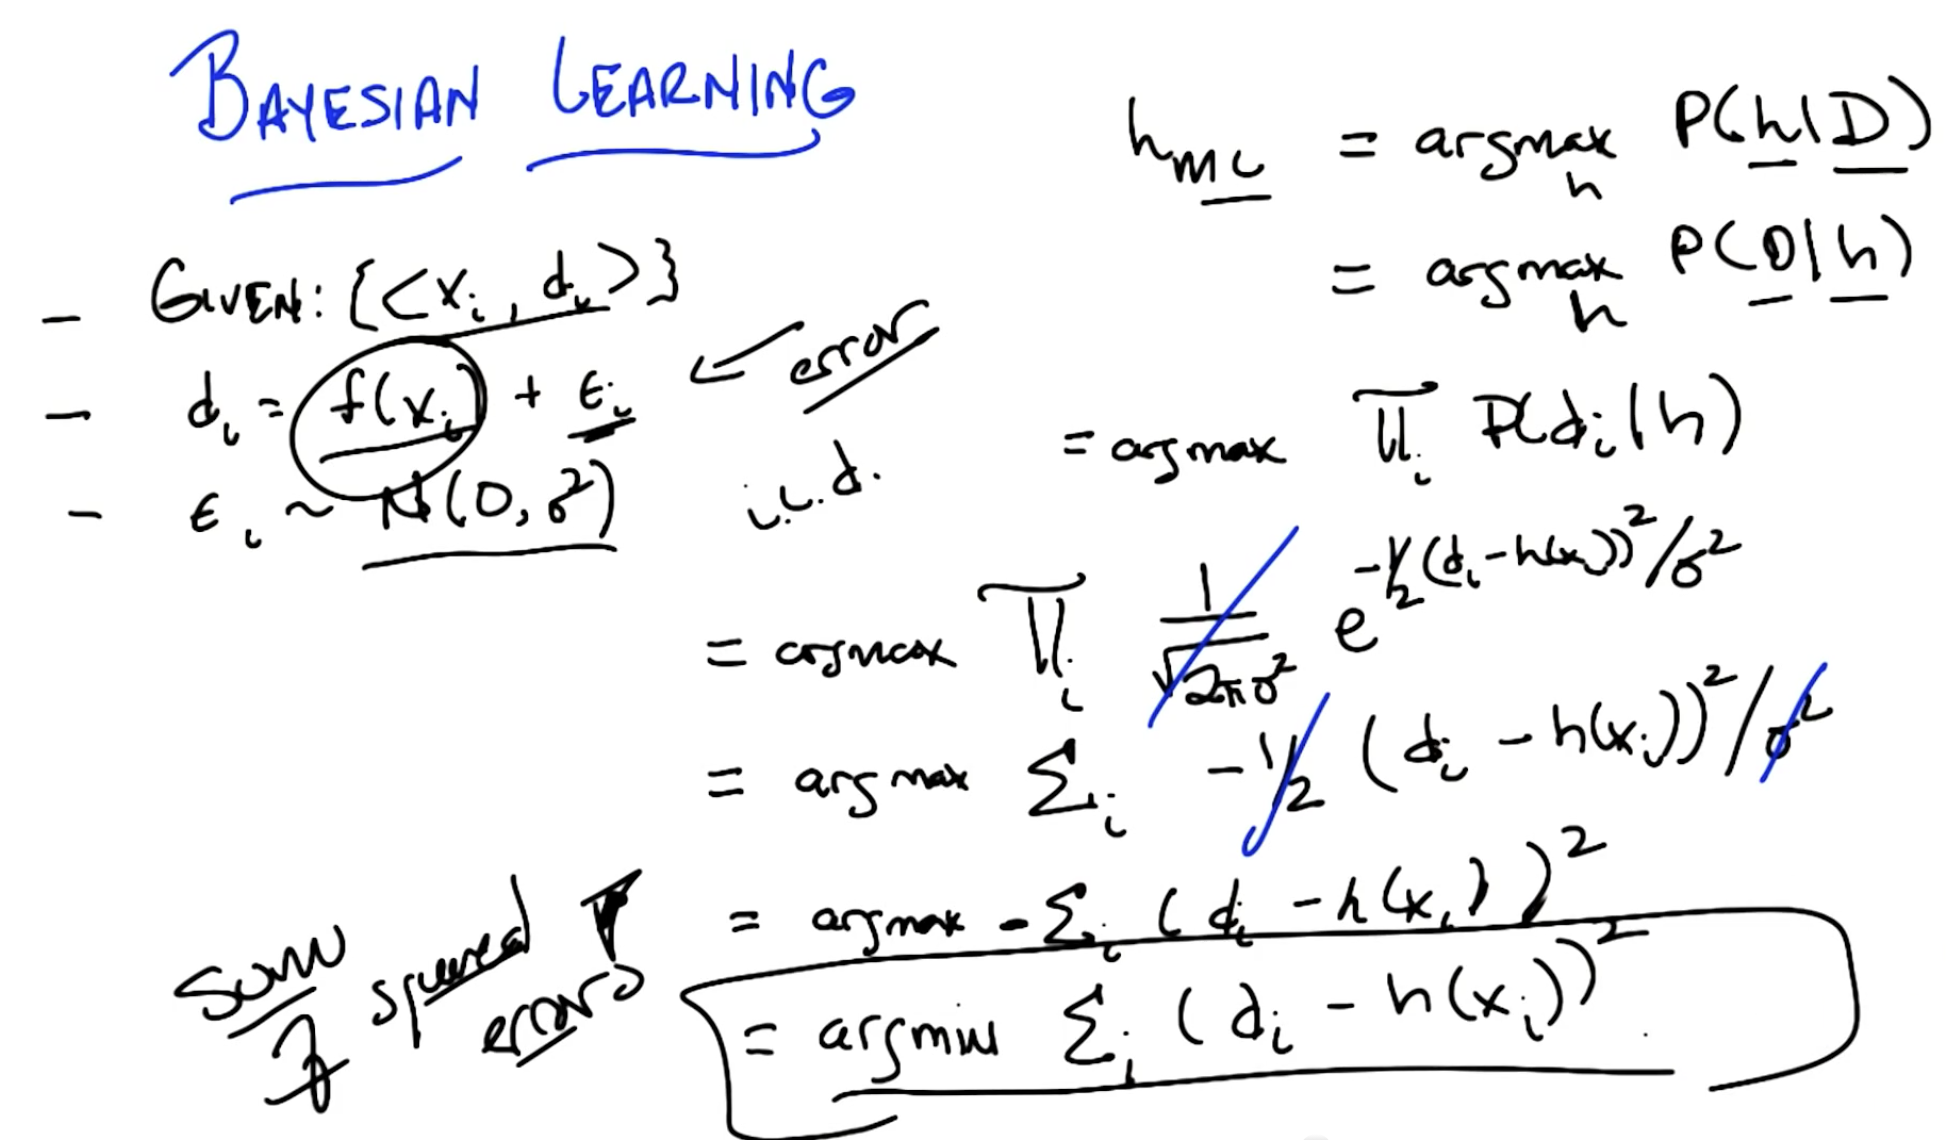 BAYESIAN LEARNING
- GIVEN: {<xᵢ, dᵢ>}
- dᵢ = f(xᵢ) + εᵢ ← error
- εᵢ ~ N(0, σ²) i.i.d.
h_ML = argmax_h P(h|D)
= argmax_h P(D|h)
= argmax ∏ᵢ P(dᵢ|h)
= argmax ∏ᵢ 1/√2πσ² e^(-1/2 (dᵢ - h(xᵢ))²/σ²)
= argmax Σᵢ -1/2 (dᵢ - h(xᵢ))²/σ²
= argmax -Σᵢ (dᵢ - h(xᵢ))²
= argmin Σᵢ (dᵢ - h(xᵢ))²
sum of squared errors